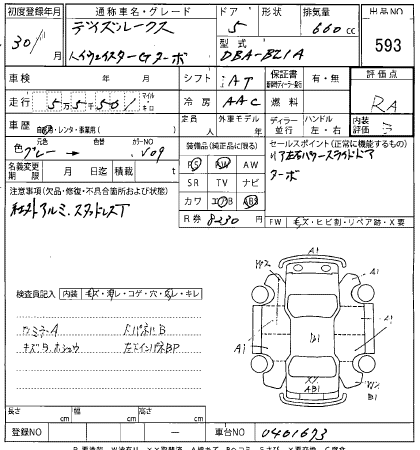 初度登録年月 通称車名・グレード ドア 形状 排気量 出品NO
30/11月 デイズルークス 5 660cc 593
ハイウェイスターGターボ 型式 DBA-B21A
車検 年 月 シフト IAT 保証書 有・無 評価点
走行 5万5千501 マイル キロ 冷房 AAC 燃料 RA
車歴 自家用・レンタ・事業用( ) 定員 人 外車モデル 年 ディーラー 並行 ハンドル 左・右 内装評価
色 元色 グレー 色替 カラーNO V09 装備品(純正品に限る) セールスポイント(正常に機能するもの)
PS PW AW 左右パワースライドドア
名義変更期限 月 日迄 積載 t SR TV ナビ ターボ
注意事項(欠品・修復・不具合箇所および状態) カワ エアB ABS
社外アルミ、スタッドレスT R券 8230円 FW キズ・ヒビ割・リペア跡・X要
検査員記入 内装 キズ・汚レ・コゲ・穴・ルレ・キレ
A1
A1
A1
A1
B1
XX
AB1
B1
ミラーA
キズ
BP
長さ cm 幅 cm 高さ cm
登録NO — 車台NO 0401673